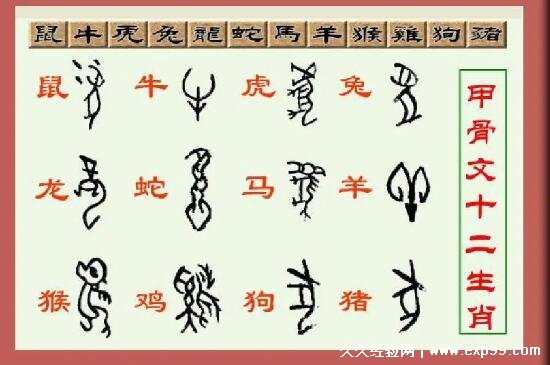 鼠牛虎兔龍蛇馬羊猴雞狗豬
鼠 牛 虎 兔
龙 蛇 马 羊
猴 鸡 狗 猪
甲骨文十二生肖
久久经验网 | www.exp99.com